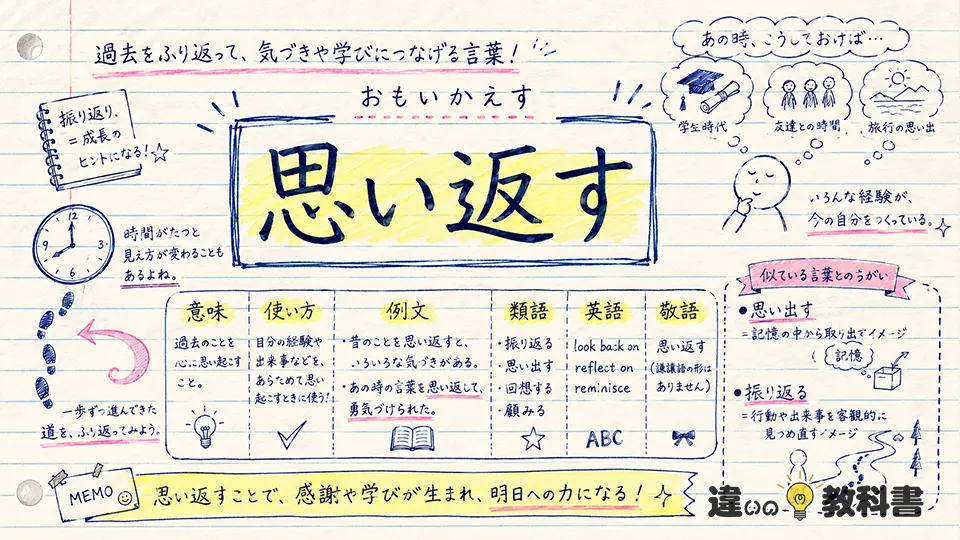 過去をふり返って、気づきや学びにつなげる言葉!
おもいかえす
思い返す
振り返り、
=成長の
ヒントになる!
12
3
6
9
時間がたつと
見え方が変わることも
あるよね。
一歩ずつ進んできた
道を、ふり返ってみよう。
あの時、こうしておけば…
学生時代
友達との時間
旅行の思い出
いろんな経験が、
今の自分をつくっている。
意味
過去のことを
心に思い起こす
こと。
使い方
自分の経験や
出来事などを、
あらためて思い
起こすときに使う!
例文
・昔のことを思い返すと、
いろいろな気づきがある。
・あの時の言葉を思い返して、
勇気づけられた。
類語
・振り返る
・思い出す
・回想する
・顧みる
英語
look back on
reflect on
reminisce
ABC
敬語
思い返す
(謙譲語の形は
ありません)
似ている言葉とのちがい
●思い出す
=記憶の中から取り出でイメージ
記憶
●振り返る
=行動や出来事を客観的に
見つめ直すイメージ
MEMO
思い返すことで、感謝や学びが生まれ、明日への力になる!
違いの教科書